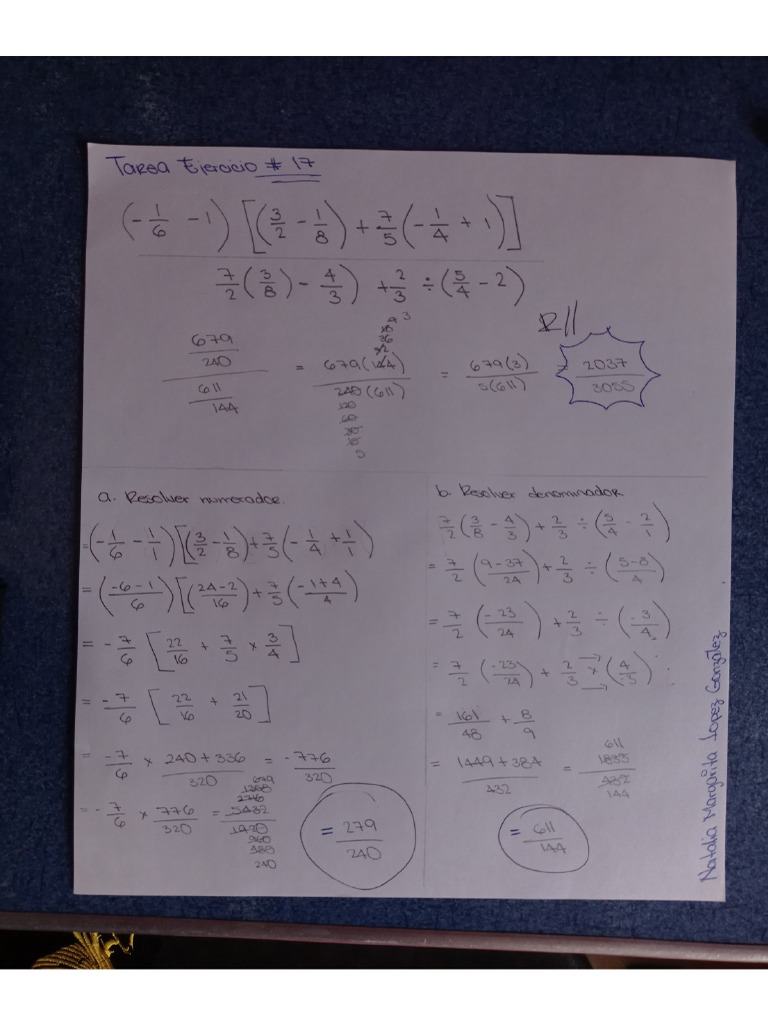 Tarea Ejercicio # 17
(- 1/6 - 1) [(3/2 - 1/8) + 7/5 (- 1/4 + 1)]
7/2 (3/8) - 4/3) + 2/3 ÷ (5/4 - 2)
R//
679/240 / 611/144 = 679(144) / 240(611) = 679(3) / 5(611) = 2037/3055
a. Resolver numerador.
= (- 1/6 - 1/1) [(3/2 - 1/8) + 7/5 (- 1/4 + 1/1)
= (-6-1 / 6) [(24-2 / 16) + 7/5 (-1+4 / 4)
= - 7/6 [22/16 + 7/5 × 3/4]
= -7/6 [22/16 + 21/20]
= -7/6 × 240+336 / 320 = -776/320
= - 7/6 × 776/320 = 5432/1920
= 279/240
b. Resolver denominador
7/2 (3/8 - 4/3) + 2/3 ÷ (5/4 - 2/1)
= 7/2 (9-37 / 24) + 2/3 ÷ (5-8 / 4)
= 7/2 (-23/24) + 2/3 ÷ (-3/4)
= 7/2 (-23/24) + 2/3 × (4/-3)
= 161/48 + 8/9
= 1449+384 / 432 = 611 1833 / 432 144
= 611/144
Natalia Margarita Lopez González